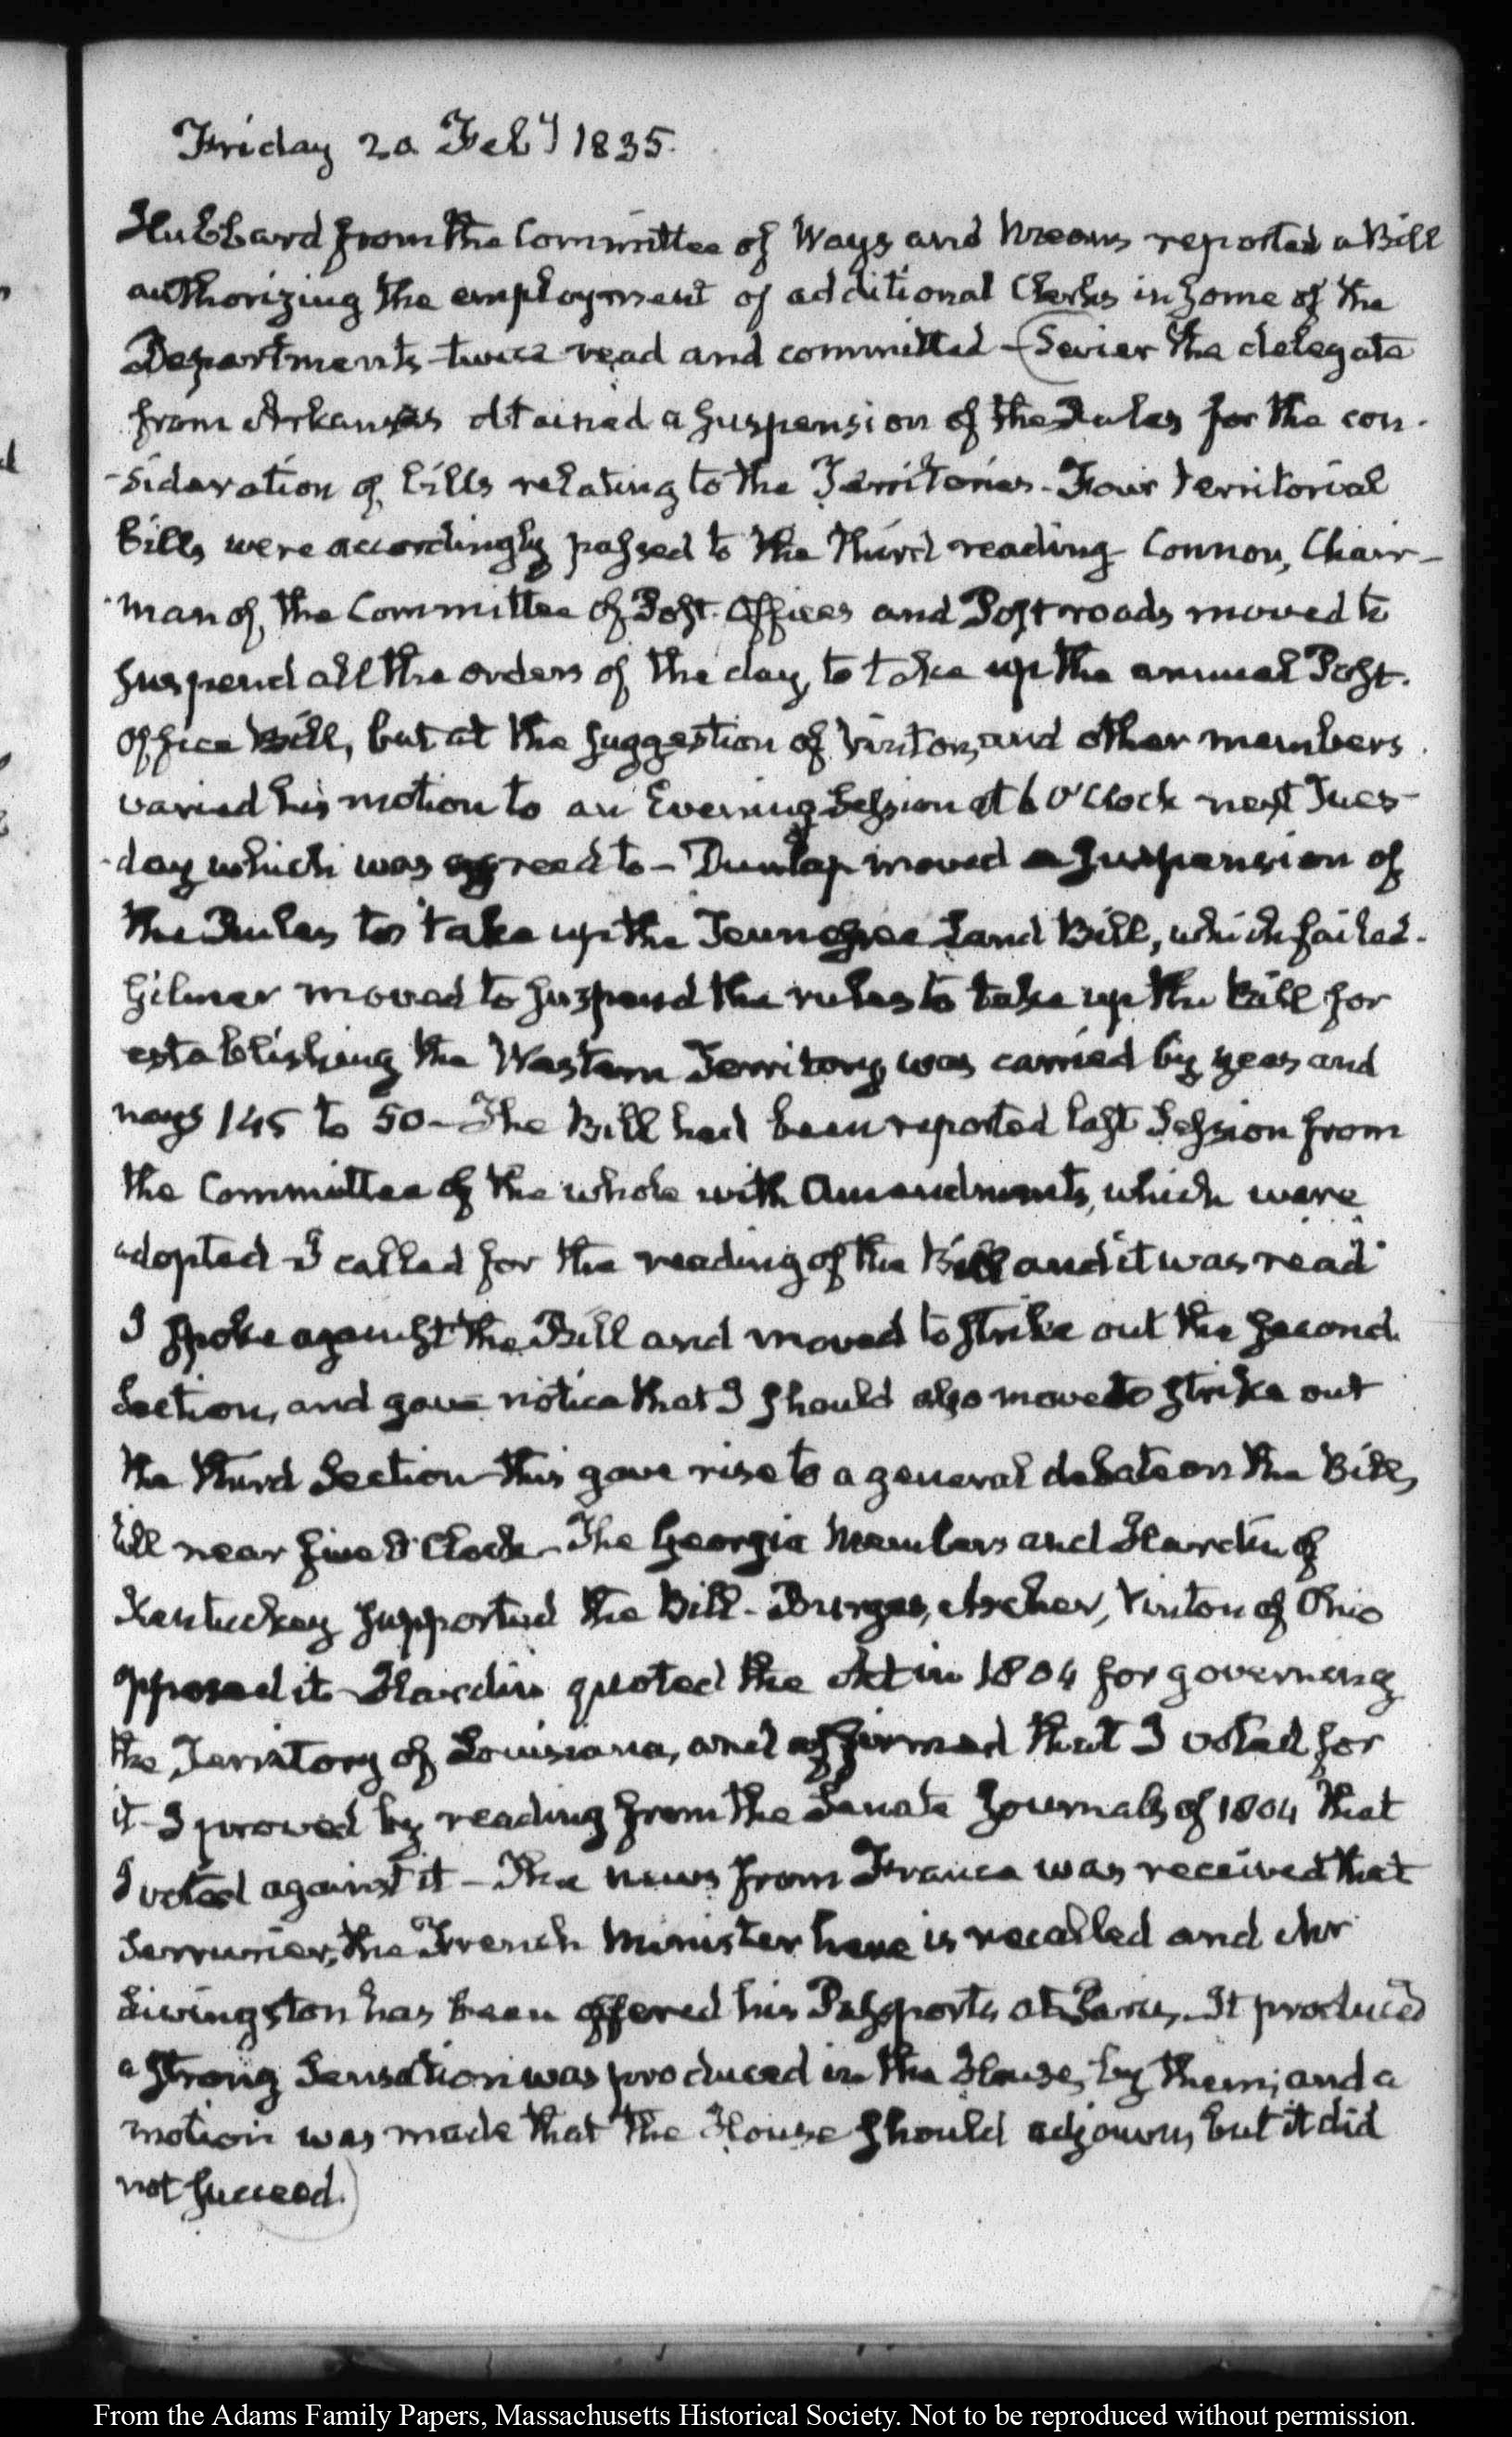 Friday 20. Feby 1835.
Hubbard from the Committee of Ways and Means reported a Bill
authorizing the employment of additional Clerks in some of the
Departments twice read and committed - (Sevier the delegate
from Arkansas obtained a suspension of the Rules for the con-
-sideration of bills relating to the Territories - Four territorial
bills were accordingly passed to the third reading - Connor, Chair-
-man of the Committee of Post-Offices and Postroads moved to
suspend all the orders of the day, to take up the annual Post-
office Bill, but at the suggestion of Vinton, and other members
varied his motion to an Evening Session at 6 O'Clock next Tues-
-day which was agreed to - Dunlap moved a suspension of
the Rules to take up the Tennessee Land Bill, which failed.
Gilmer moved to suspend the rules to take up the Bill for
establishing the Western Territory, was carried by yeas and
nays 145 to 50 - The Bill had been reported last Session from
the Committee of the whole with Amendments, which were
adopted - I called for the reading of the Bill and it was read
I spoke against the Bill and moved to strike out the second
Section, and gave notice that I should also move to strike out
the third Section - this gave rise to a general debate on the Bill,
till near five O'Clock - The Georgia Members and Hardin of
Kentuckey supported the Bill - Burges, Archer, Vinton of Ohio
opposed it - Hardin quoted the Act in 1804 for governing
the Territory of Louisiana, and affirmed that I voted for
it - I proved by reading from the Senate Journals of 1804 that
I voted against it - The news from France was received that
Serrurier, the French Minister here is recalled and Mr
Livingston has been offered his Passports at Paris. It produced
a strong Sensation was produced in the House, by them; and a
motion was made that the House should adjourn, but it did
not succeed.)
From the Adams Family Papers, Massachusetts Historical Society. Not to be reproduced without permission.